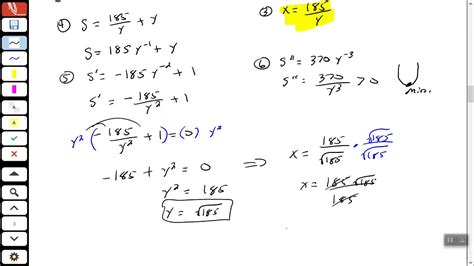 ④ S = 185/y + y
S = 185 y⁻¹ + y
⑤ S' = -185 y⁻² + 1
S' = -185/y² + 1
y² (-185/y² + 1) = (0) y²
-185 + y² = 0
y² = 185
y = √185
③ x = 185/y
⑥ S'' = 370 y⁻³
S'' = 370/y³ > 0
min.
⇒ x = 185/√185 · √185/√185
x = 185√185/185